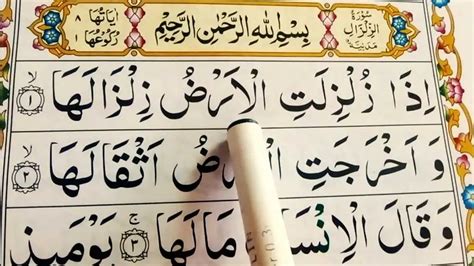 سُورَةُ الزِّلْزَالِ مَدَنِيَّةٌ
بِسْمِ اللّٰهِ الرَّحْمٰنِ الرَّحِيْمِ
اٰيَاتُهَا ٨
رُكُوْعُهَا ١
اِذَا زُلْزِلَتِ الْاَرْضُ زِلْزَالَهَا ۙ ﴿١﴾
وَ اَخْرَجَتِ الْاَرْضُ اَثْقَالَهَا ۙ ﴿٢﴾
وَقَالَ الْاِنْسَانُ مَالَهَا ۚ ﴿٣﴾ يَوْمَئِذٍ